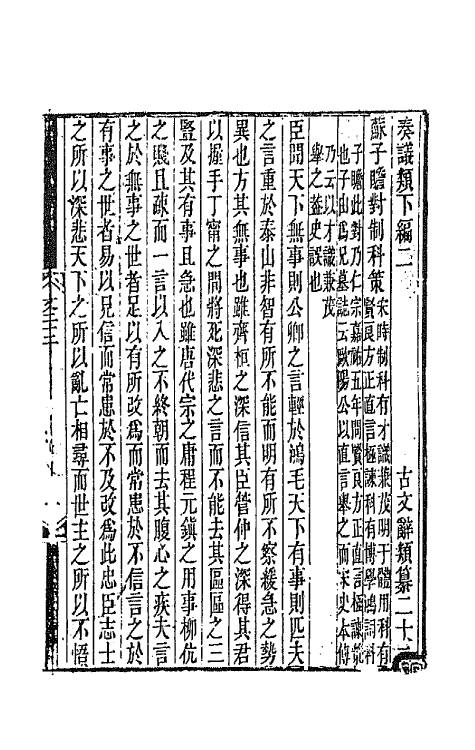 奏議類下編二　古文辭類纂二十
蘇子瞻對制科策
宋時制科有才識兼茂明于體用科有
賢良方正直言極諫科有博學鴻詞科
子瞻此對乃仁宗嘉祐五年問賢良方正直言極諫策
也子由為兄墓誌云歐陽公以直言舉之而宋史本傳
乃云以才識兼茂
舉之蓋史誤也
臣聞天下無事則公卿之言輕於鴻毛天下有事則匹夫
之言重於泰山非智有所不能而明有所不察緩急之勢
異也方其無事也雖齊桓之深信其臣管仲之深得其君
以握手丁甯之間將死深悲之言而不能去其區區之三
豎及其有事且急也雖唐代宗之庸程元鎮之用事柳伉
之賤且疎而一言以入之不終朝而去其腹心之疾夫言
之於無事之世者足以有所改為而常患於不信言之於
有事之世者易以見信而常患於不及改為此忠臣志士
之所以深悲天下之所以亂亡相尋而世主之所以不悟